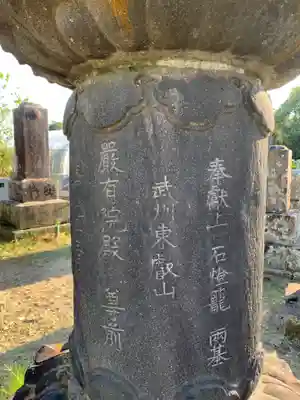 奉獻上石燈籠兩基
武州東叡山
嚴有院殿 尊前